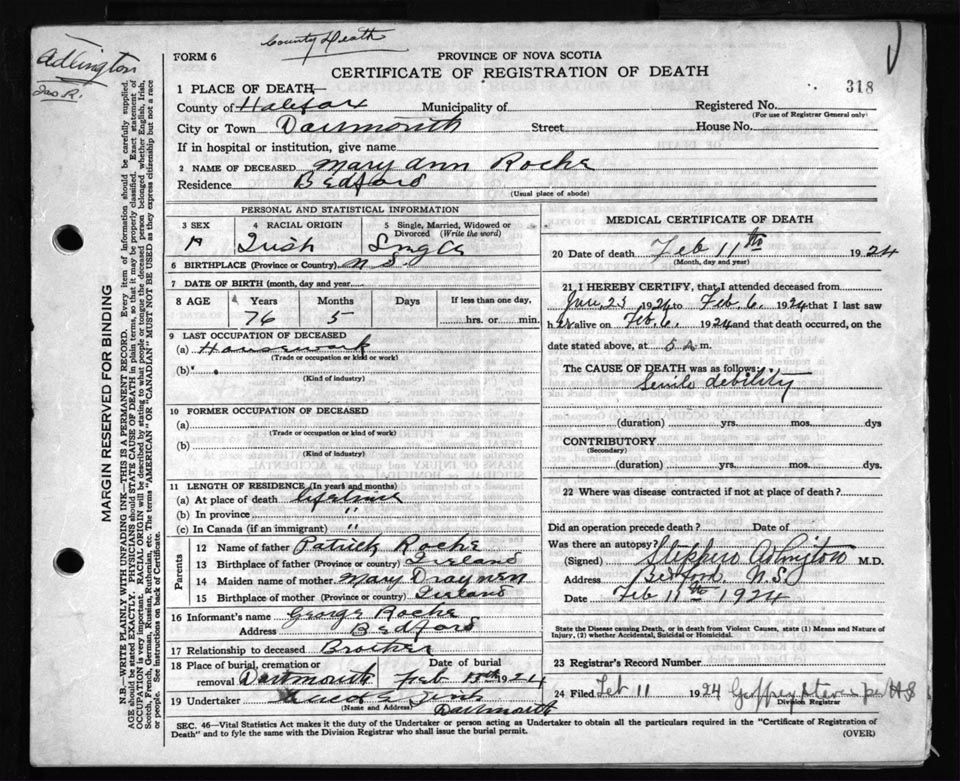 County Death
Adlington
Jas R.
FORM 6
PROVINCE OF NOVA SCOTIA
CERTIFICATE OF REGISTRATION OF DEATH
318
1 PLACE OF DEATH—
County of Halifax Municipality of Registered No.
(For use of Registrar General only)
City or Town Dartmouth Street House No.
If in hospital or institution, give name
2 NAME OF DECEASED Mary Ann Roche
Residence Bedford
(Usual place of abode)
PERSONAL AND STATISTICAL INFORMATION
3 SEX 4 RACIAL ORIGIN 5 Single, Married, Widowed or Divorced (Write the word)
Irish Single
6 BIRTHPLACE (Province or Country) N S
7 DATE OF BIRTH (month, day and year)
8 AGE Years Months Days If less than one day,
76 5 hrs. or min.
9 LAST OCCUPATION OF DECEASED
(a) Housework
(Trade or occupation or kind of work)
(b)
(Kind of industry)
10 FORMER OCCUPATION OF DECEASED
(a)
(Trade or occupation or kind of work)
(b)
(Kind of industry)
11 LENGTH OF RESIDENCE (In years and months)
(a) At place of death lifetime
(b) In province "
(c) In Canada (if an immigrant) "
Parents
12 Name of father Patrick Roche
13 Birthplace of father (Province or country) Ireland
14 Maiden name of mother Mary
15 Birthplace of mother (Province or country) Ireland
16 Informant's name George Roche
Address Bedford
17 Relationship to deceased Brother
18 Place of burial, cremation or removal Dartmouth Date of burial Feb 13th 1924
19 Undertaker
(Name and Address) Dartmouth
MEDICAL CERTIFICATE OF DEATH
20 Date of death Feb 11th 1924
(Month, day and year)
21 I HEREBY CERTIFY, that I attended deceased from
Jan. 23 1924 to Feb. 6. 1924 that I last saw
her alive on Feb. 6. 1924 and that death occurred, on the
date stated above, at 5 a m.
The CAUSE OF DEATH was as follows:
Senile debility
(duration) yrs. mos. dys
CONTRIBUTORY
(Secondary)
(duration) yrs. mos. dys.
22 Where was disease contracted if not at place of death?
Did an operation precede death? Date of
Was there an autopsy?
(Signed) M.D.
Address Bedford, N.S.
Date Feb 11th 1924
State the Disease causing Death, or in death from Violent Causes, state (1) Means and Nature of
Injury, (2) whether Accidental, Suicidal or Homicidal.
23 Registrar's Record Number
24 Filed Feb 11 1924 Geoffrey Stevens per HS
Division Registrar
SEC. 46—Vital Statistics Act makes it the duty of the Undertaker or person acting as Undertaker to obtain all the particulars required in the "Certificate of Registration of
Death" and to fyle the same with the Division Registrar who shall issue the burial permit.
(OVER)
MARGIN RESERVED FOR BINDING
N.B.—WRITE PLAINLY WITH UNFADING INK—THIS IS A PERMANENT RECORD. Every item of information should be carefully supplied.
AGE should be stated EXACTLY. PHYSICIANS should STATE CAUSE OF DEATH in plain terms, so that it may be properly classified. Exact statement of
OCCUPATION is very important. RACIAL ORIGIN will be described by stating to what people or tongue the deceased person belonged whether English, Irish,
Scotch, French, German, Russian, Ruthenian, etc. The terms "AMERICAN" or "CANADIAN" MUST NOT BE USED as they express citizenship but not a race
or people. See instructions on back of Certificate.